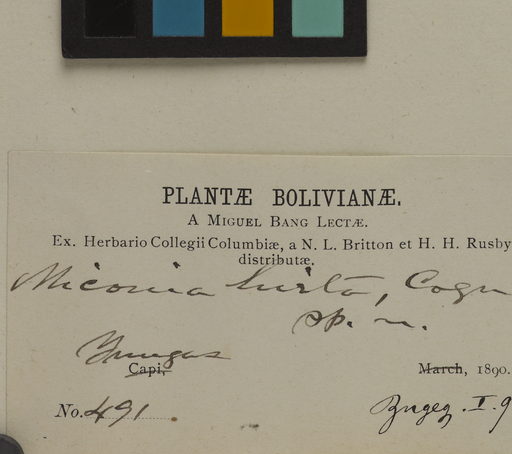 PLANTÆ BOLIVIANÆ.
A MIGUEL BANG LECTÆ.
Ex. Herbario Collegii Columbiæ, a N. L. Britton et H. H. Rusby
distributæ.
Miconia hirta, Cogn
sp. n.
Yungas
Capi, March, 1890.
No. 491.